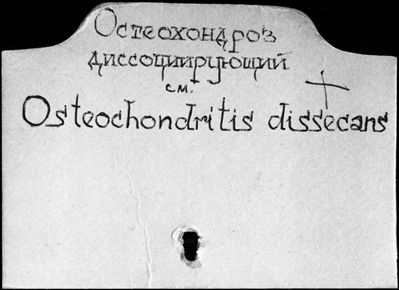 Остеохондроз
диссоциирующий
см.
Osteochondritis dissecans